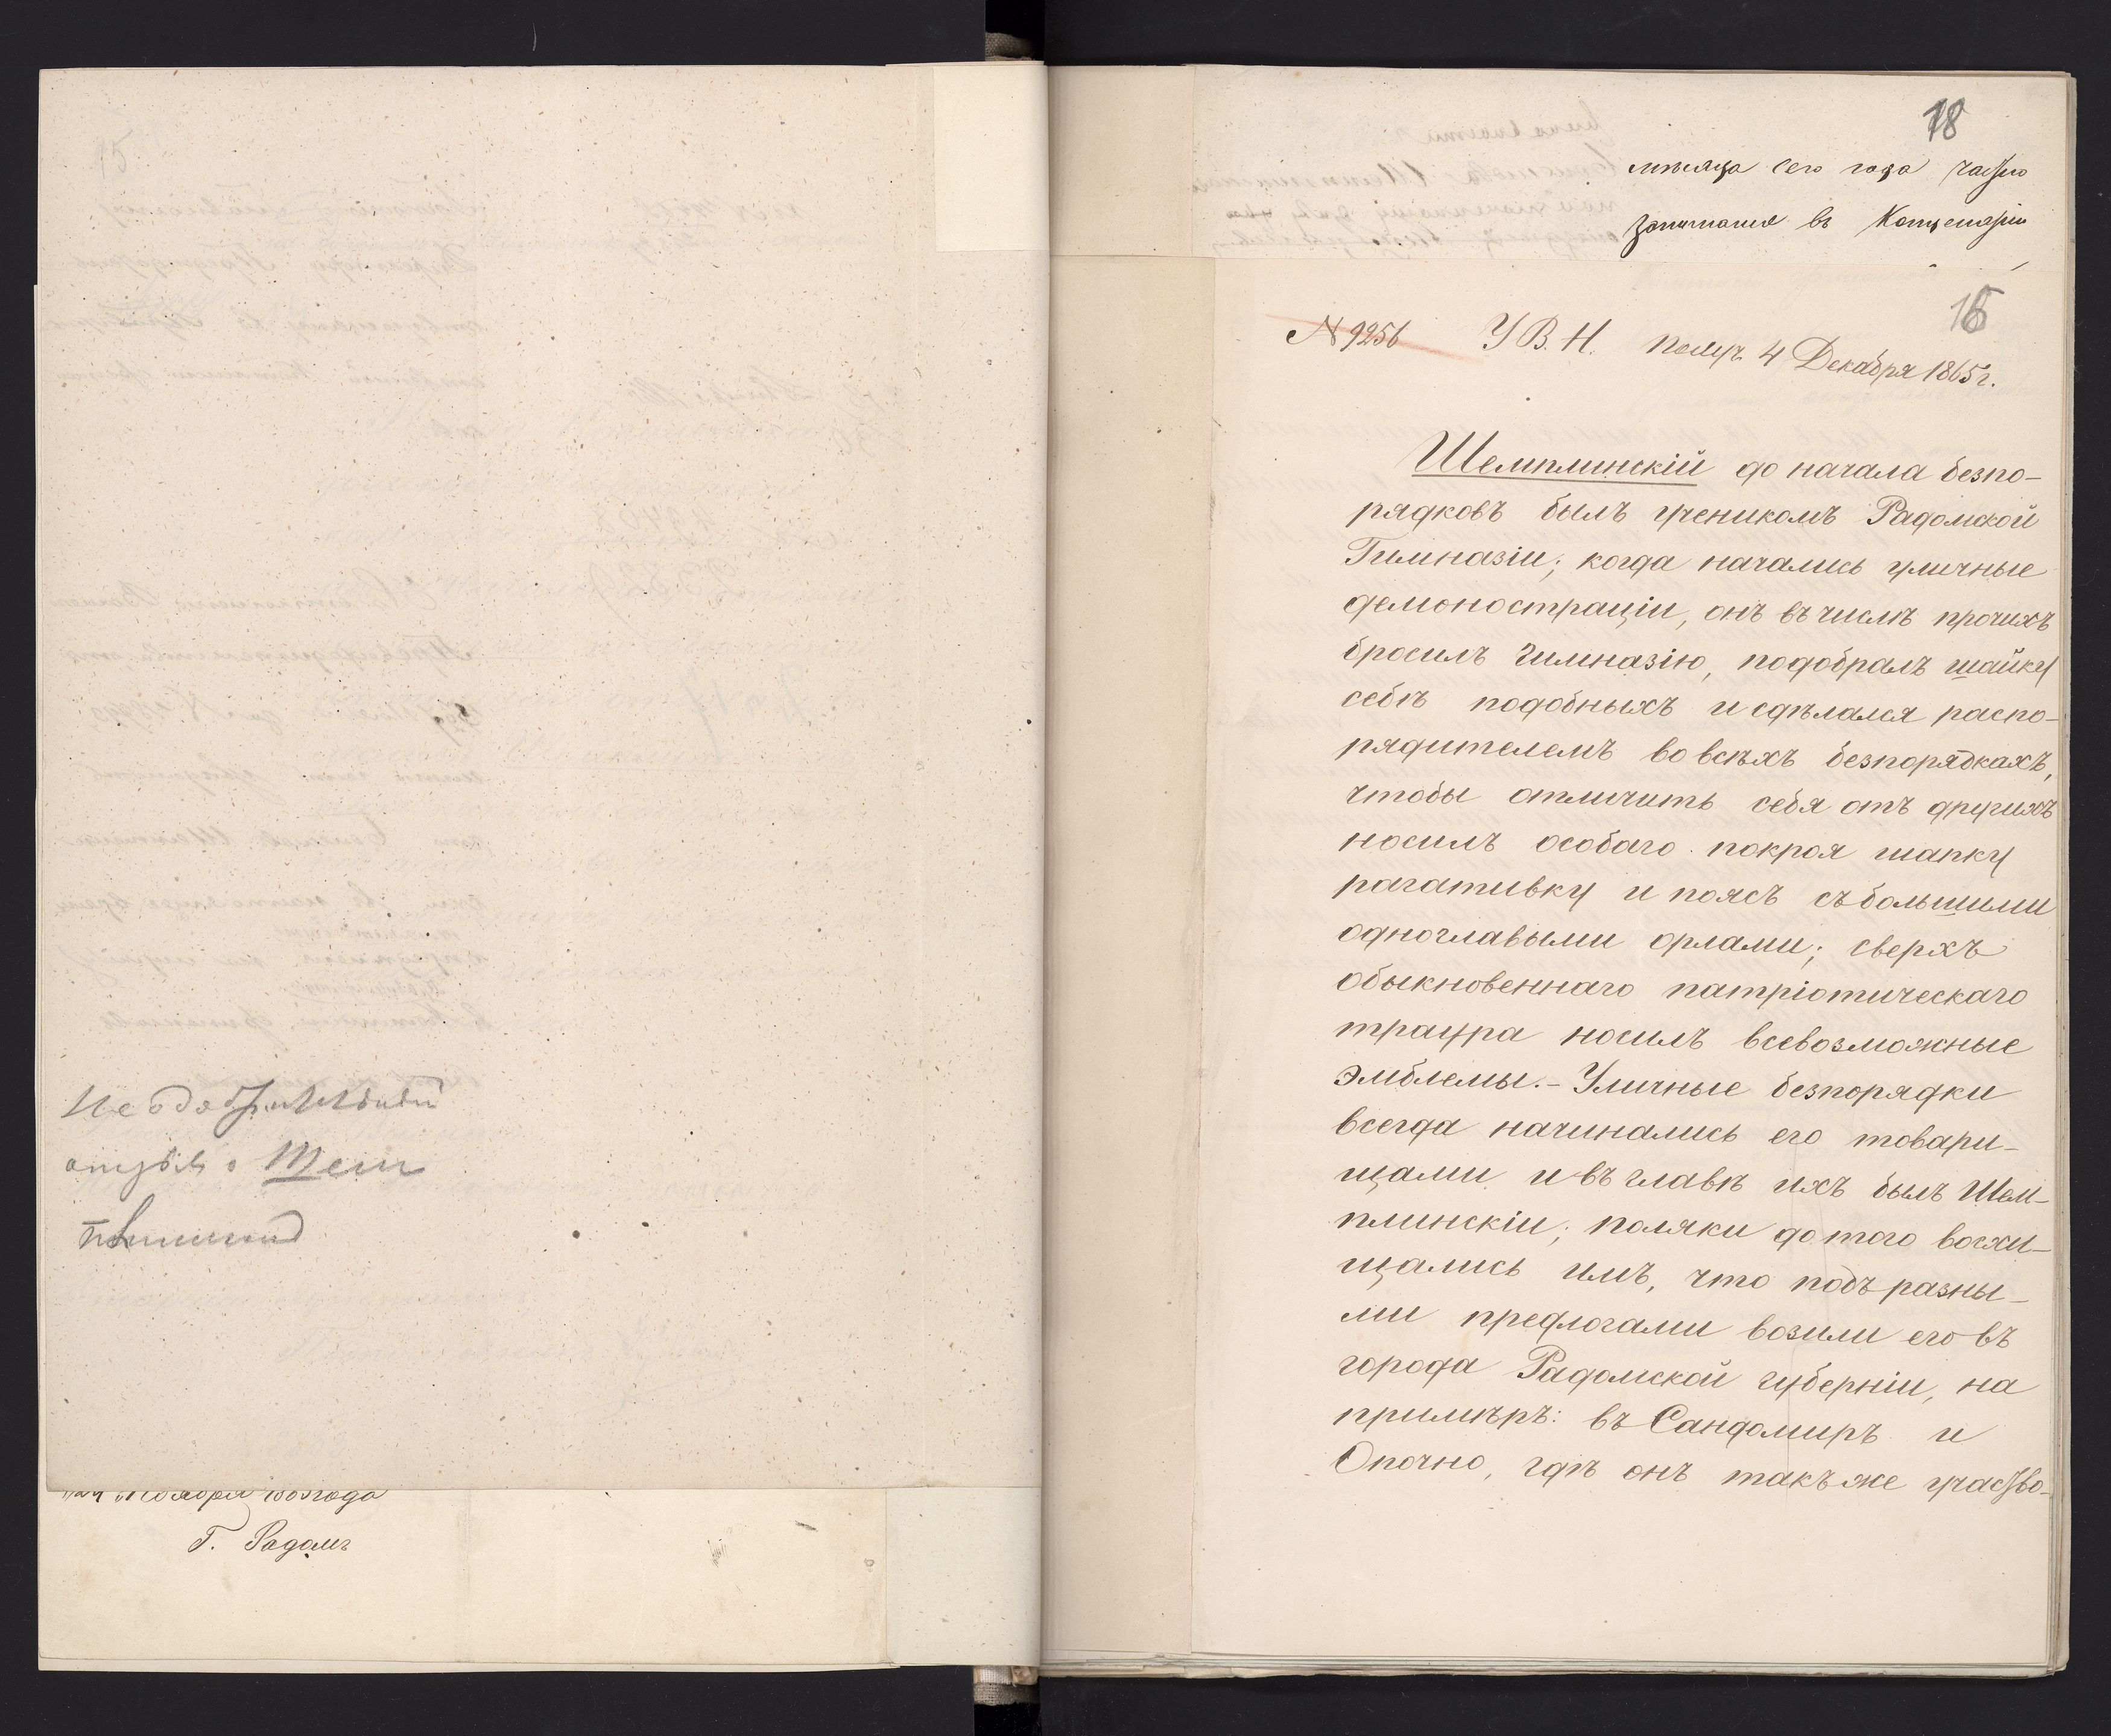 Неодобрительный
отзывъ о Шем
плинскомъ
24 Ноября 1865 года
Г. Радомъ
18
мѣсяца сего года
занимался въ Канцеляріи
16
№ 9256 У В. Н. получ 4 Декабря 1865 г.
Шемплинскій до начала безпо-
рядковъ былъ ученикомъ Радомской
Гимназіи; когда начались уличные
демоностраціи, онъ въ числѣ прочихъ
бросилъ Гимназію, подобралъ шайку
себѣ подобныхъ и сдѣлался распо-
рядителемъ во всѣхъ безпорядкахъ,
чтобы отличить себя отъ другихъ
носилъ особаго покроя шапку
рагативку и поясъ съ большими
одноглавыми орлами; сверхъ
обыкновеннаго патріотическаго
траура носилъ всевозможные
эмблемы. - Уличные безпорядки
всегда начинались его товари-
щами и въ главѣ ихъ былъ Шем-
плинскій; поляки до того восхи-
щались имъ, что подъ разны-
ми предлогами возили его въ
города Радомской губерніи, на
примѣръ: въ Сандомиръ и
Опочно, гдѣ онъ такъ же участво-